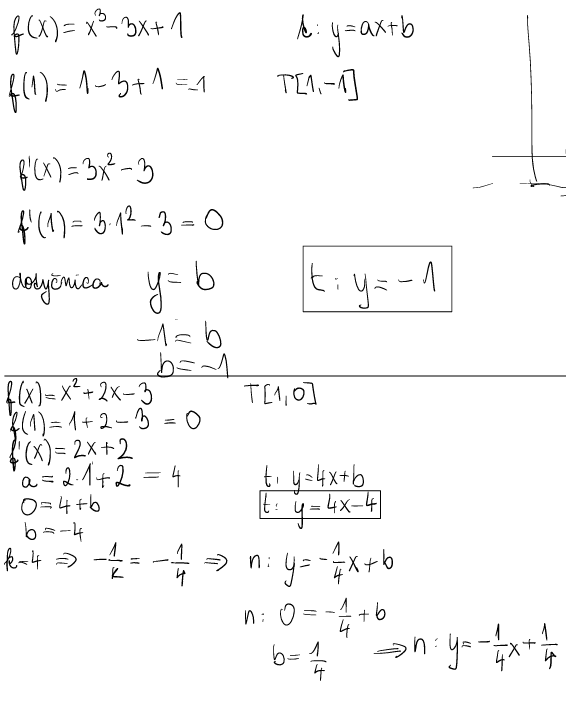 f(x) = x³-3x+1 t: y=ax+b
f(1) = 1-3+1 = -1 T[1,-1]
f'(x) = 3x²-3
f'(1) = 3·1²-3 = 0
dotyčnica y = b t: y = -1
-1 = b
b = -1
f(x) = x²+2x-3 T[1,0]
f(1) = 1+2-3 = 0
f'(x) = 2x+2
a = 2·1+2 = 4 t: y=4x+b
0=4+b t: y=4x-4
b=-4
k=4 ⇒ -1/k = -1/4 ⇒ n: y=-1/4x+b
n: 0=-1/4+b
b=1/4 ⇒ n: y=-1/4x+1/4